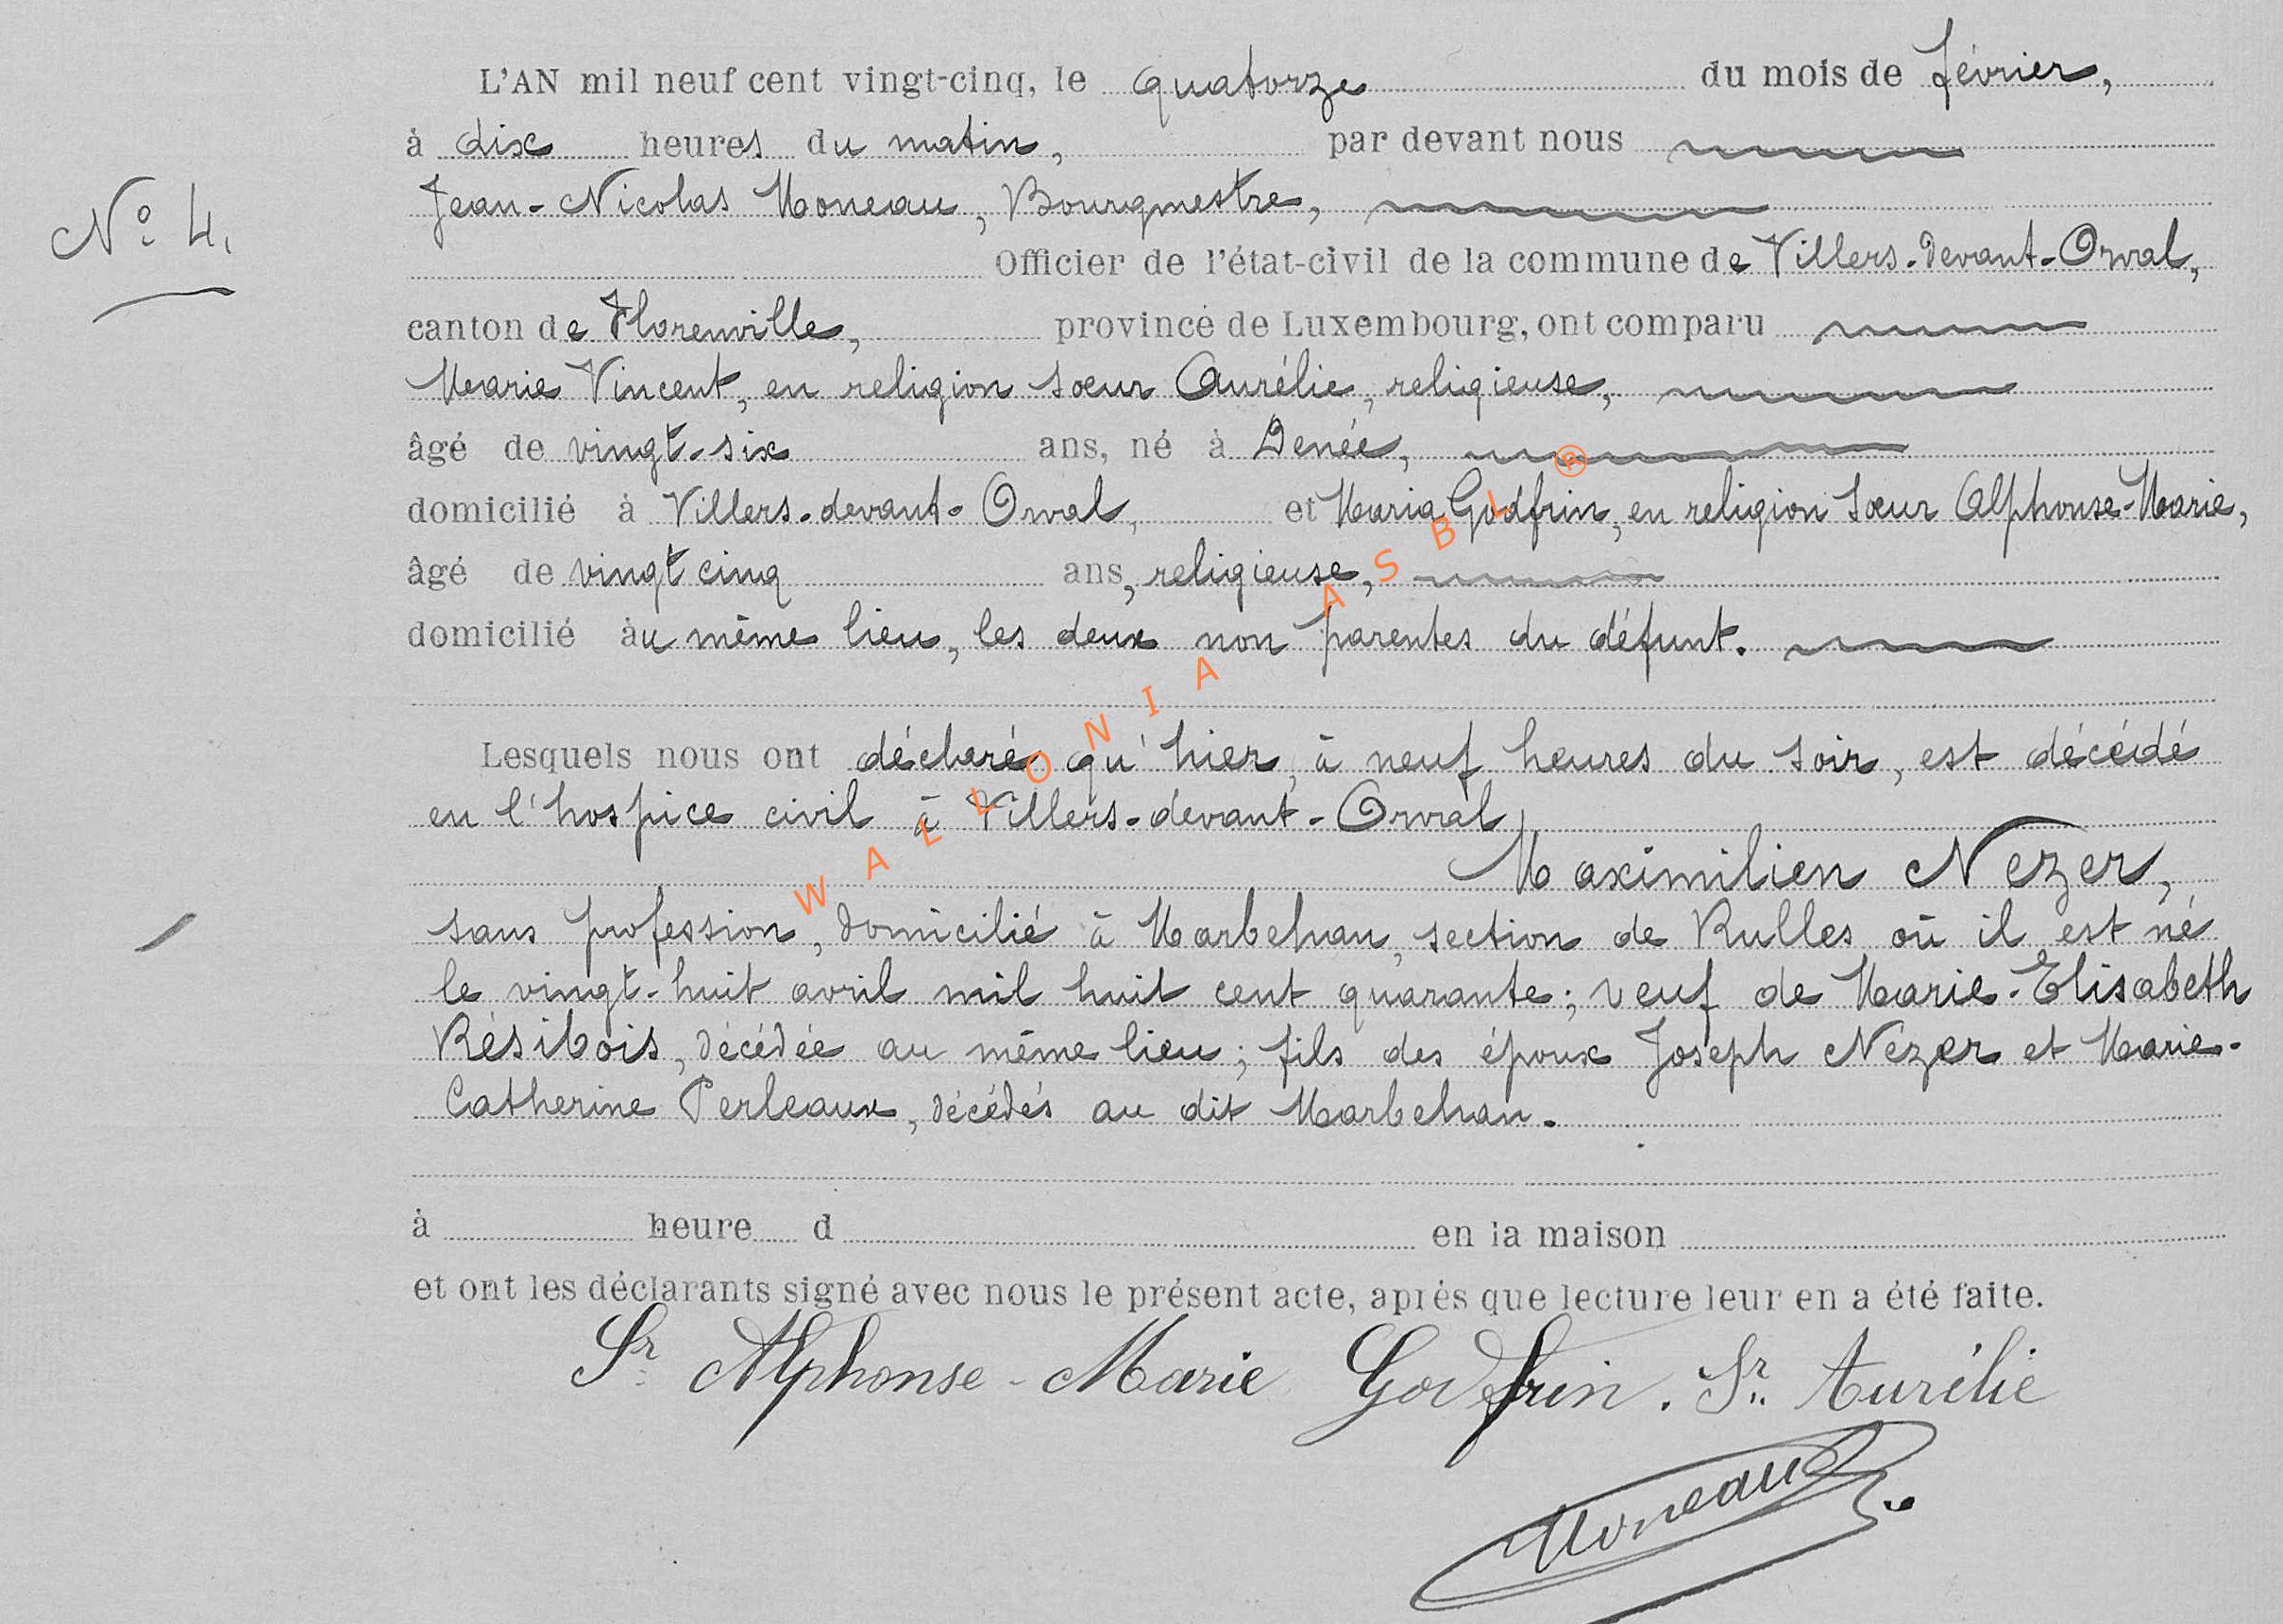 L'AN mil neuf cent vingt-cinq, le quatorze du mois de février,
à dix heures du matin, par devant nous
Jean-Nicolas Moneau, Bourgmestre,
N° 4.
Officier de l'état-civil de la commune de Villers-devant-Orval,
canton de Florenville, province de Luxembourg, ont comparu
Marie Vincent, en religion sœur Aurélie, religieuse,
âgé de vingt-six ans, né à Denée,
domicilié à Villers-devant-Orval, et Maria Godfrin, en religion Sœur Alphonse-Marie,
âgé de vingt cinq ans, religieuse,
domicilié au même lieu, les deux non parentes du défunt.
Lesquels nous ont déclaré qu'hier, à neuf heures du soir, est décédé
en l'hospice civil à Villers-devant-Orval,
Maximilien Nezer,
sans profession, domicilié à Marbehan, section de Rulles où il est né
le vingt-huit avril mil huit cent quarante; veuf de Marie-Elisabeth
Résibois, décédée au même lieu; fils des époux Joseph Nézer et Marie-
Catherine Perleaux, décédés au dit Marbehan.
à heure d en la maison
et ont les déclarants signé avec nous le présent acte, après que lecture leur en a été faite.
Sr Alphonse-Marie Godfrin. Sr. Aurélie
Moneau
WALLONIA ASBL ®